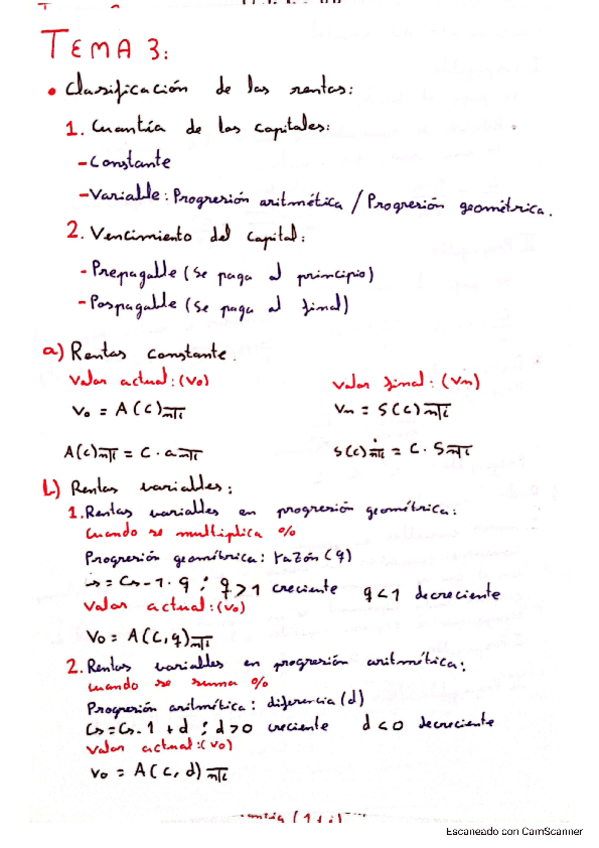 TEMA 3:
• Clasificación de las rentas:
1. Cuantía de los capitales:
- Constante
- Variable: Progresión aritmética / Progresión geométrica.
2. Vencimiento del capital:
- Prepagable (Se paga al principio)
- Pospagable (Se paga al final)
a) Rentas constante.
Valor actual: (V0) Valor final: (Vn)
V0 = A(C)n¬i Vn = S(C)n¬i
A(C)n¬i = C · an¬i S(C)n¬i = C · Sn¬i
b) Rentas variables:
1. Rentas variables en progresión geométrica:
Cuando se multiplica %
Progresión geométrica: razón (q)
Cs = Cs-1 · q ; q > 1 creciente q < 1 decreciente
Valor actual: (V0)
V0 = A(C, q)n¬i
2. Rentas variables en progresión aritmética:
Cuando se suma %
Progresión aritmética: diferencia (d)
Cs = Cs-1 + d ; d > 0 creciente d < 0 decreciente
Valor actual: (V0)
V0 = A(C, d)n¬i
Escaneado con CamScanner